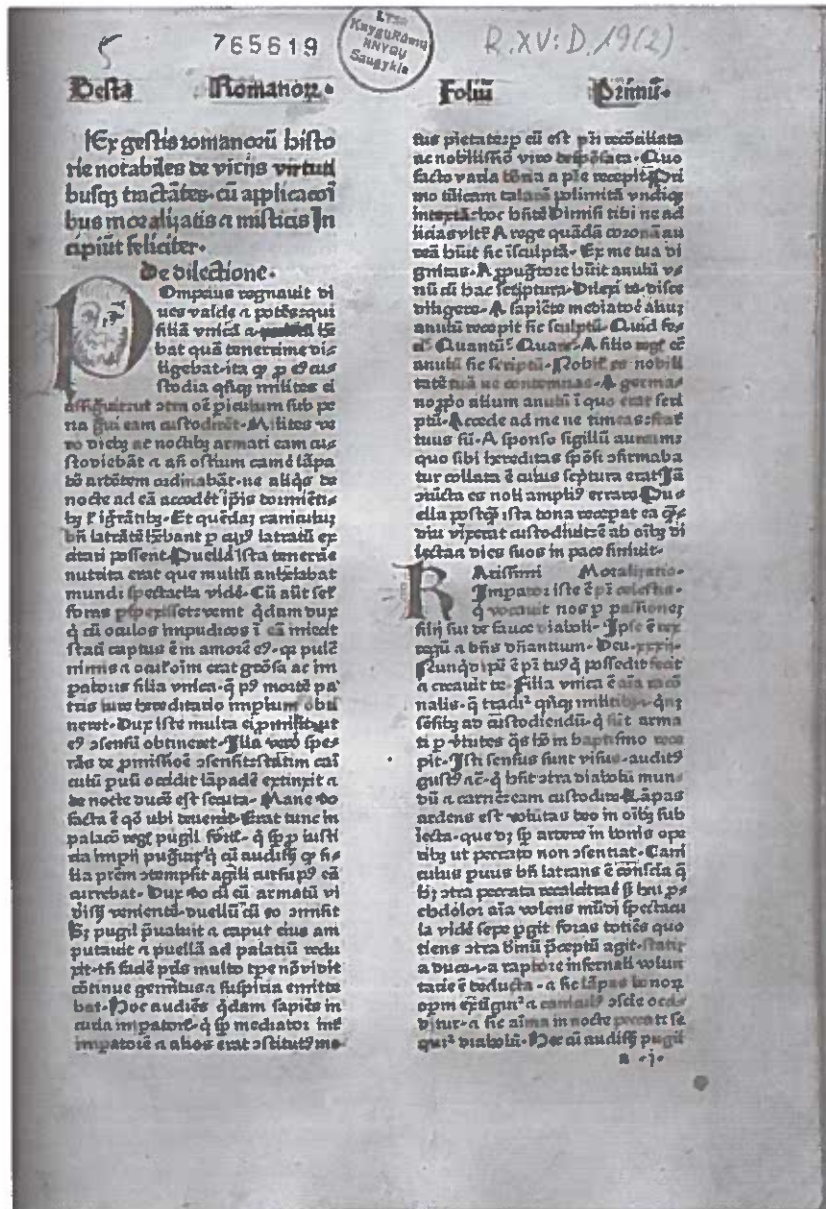 5 765619 R.XV:D.19(2)
LTSR
Knygų Rūmų
KNYGŲ
Saugykla
Gesta Romanoꝝ. Foliū Primū.
Ex gestis romanoꝝ histo
rie notabiles de vicijs virtuti
busqꝫ tractātes. cū applicacoī
bus moralizatis a misticis In
cipiūt feliciter.
De dilectione.
Pompeius regnauit di
ues valde a potēs: qui
filiā vnicā a
bat quā tenerrime di
ligebat. ita ꝙ ꝓ eꝰ cus
stodia qn̄qꝫ milites ei
assignauit ut ɔtra oē piculum sub pe
na gui eam custodirēt. Milites ve
ro diebꝫ ac noctibꝫ armati eam cus
stodiebāt a an̄ ostium camē lāpa
dē ardētem ordinabāt. ne aliqs de
nocte ad eā accedēt ip̄is dormiēti
bꝫ ł ignātibꝫ. Et quēdaꝫ caniculuꝫ
bn̄ latrātē habant p cuiꝰ latratū ex
citari possent. Puella ista tenerrīe
nutrita erat que multū anhelabat
mundi spectacula vidē. Cū aūt sel
foras pspexisset: venit qdam dux
q cū oculos impudicos ī eā iniecit
statī captus ē in amorē eꝰ. qꝛ pulcē
nimis a ocul oīm erat gcōsa ac im
patoris filia vnica. q pꝰ mortē pa
tris iure hereditario impium obti
neret. Dux iste multa ei pmisit ut
eꝰ ɔsensū obtineret. Illa verō spes
rās de pmissiōe ɔsensit: statim cai
culū puū occidit lāpadē extinxit a
de nocte ducē est secuta. Mane do
facta ē qō ubi deuenit. Erat tunc in
palaco regꝭ pugil fortꝭ. q sp ꝓ iusti
cia impij pugnat q cū audissꝫ ꝙ fi
lia prēm ɔtempsit agili cursu pꝰ eā
currebat. Dux do cū eū armatū vi
dissꝫ venientē duellū cū eo ɔmisit
Sꝫ pugil pualuit a caput eius am
putauit a puellā ad palatiū redu
xit. th̄ faciē pr̄is multo tpe nō vidit
cōtinue gemitus a suspiria emitte
bat. Hoc audiēs qdam sapiēs in
curia impatorꝭ. q sp mediator int
impatorē a alios erat ɔstitutꝰ mo
tus pietate: ꝓ cū est pri recōsiliata
ac nobilissiō viro despōsata. Quo
facto varia dōna a pre recepit. Pri
mo tūicam talarē polimitā vndiqꝫ
intextā: hoc bn̄tē Dimisi tibi ne ad
iicias vltꝰ A rege quādā coronā au
reā būit sic īsculptā. Ex me tua di
gnitas. A ppugtore būit anulū v
nū cū hac scriptura. Dilexi te. disce
diligere. A sapiēte mediatoē aliuꝫ
anulū recepit sic sculptū. Quid fe
ci? Quantū? Quare. A filio regꝭ eē
anulū sic scriptū. Nobił es nobili
tatē tuā ne contemnas. A germa
no ꝓpo alium anulū ī quo erat scri
ptū. Accede ad me ne timeas: frat
tuus sū. A sponso sigillū aureum
quo sibi hereditas spōsi ɔfirmaba
tur collata ē cuius scptura erat. Iā
ɔiūcta es noli ampliꝰ errare. Pu
ella postꝙ ista dona recepat ea ꝙ
diu vixerat custodiuit: ē ab oībꝫ di
lecta a dies suos in pace finiuit.
R Arissimi Moralizatio.
Impator iste ē pr̄ celestis.
q vocauit nos p passioneꝫ
filij sui de fauce diaboli. Ipse ē rex
regū a dn̄s dn̄antium. Deu. xxxij.
Nunqd ipē ē pr̄ tuꝰ q possedit fecit
a creauit te. Filia vnica ē aīa racō
nalis. q tradiť qn̄qꝫ militibꝫ. qnꝫ
sēsibꝫ ad custodiendū. q sūt arma
ti p v̄tutes qs hō in baptismo rece
pit. Isti sensus sunt visus. auditꝰ
gustꝰ ac̄. q hn̄t ɔtra diabolū mun
dū a carnē eam custodire. Lāpas
ardens est volūtas deo in oībꝫ sub
iecta. que dꝫ sp ardere in bonis ope
ribꝫ ut peccato non ɔsentiat. Cani
culus puus bn̄ latrans ē conscīa q
hꝫ ɔtra peccata recalcitraē
dolor aīa volens mūdi spectacu
la vidē sepe pgit foras toties quo
tiens ɔtra diuinū pceptū agit. statiꝫ
a duce. i. a raptore infernali volun
tarie ē seducta. a sic lāpas bonoꝝ
opm extīguit a caniculꝰ ɔscīe occi
ditur. a sic aīma in nocte peccati se
quiť diabolū. Hoc cū audissꝫ pugil
a .j.